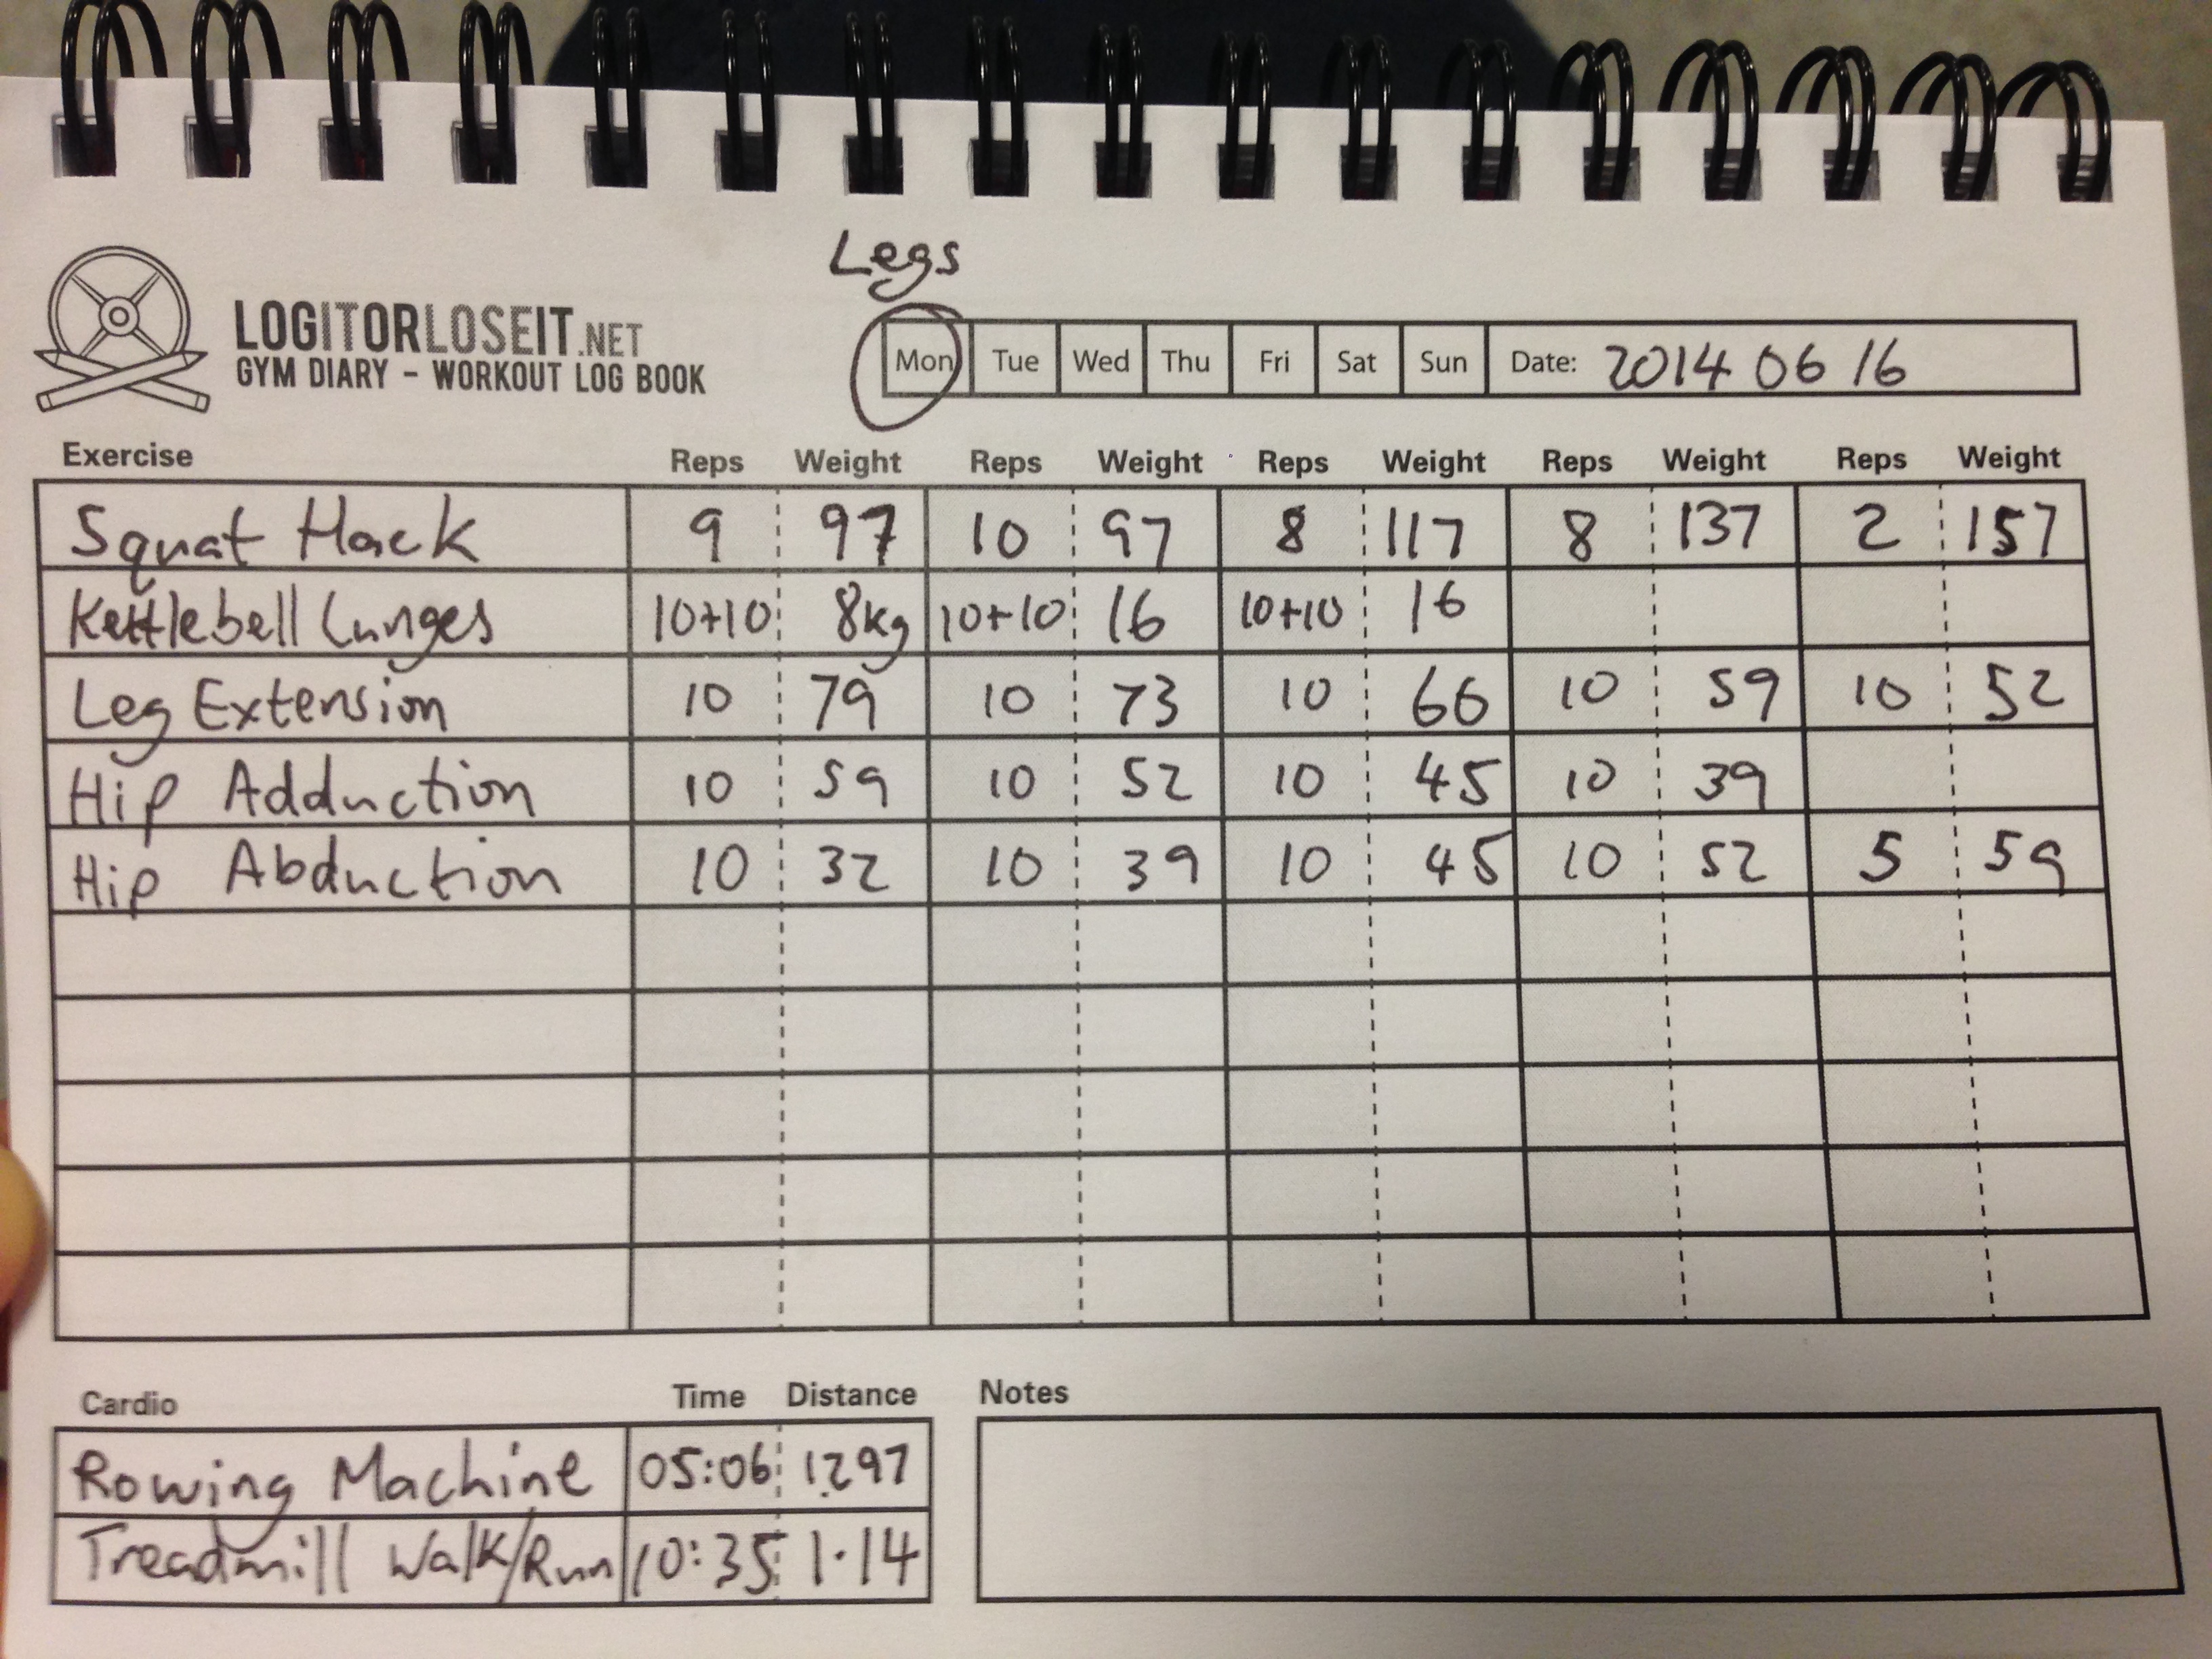 Legs
LOGITORLOSEIT.NET
GYM DIARY - WORKOUT LOG BOOK
Mon Tue Wed Thu Fri Sat Sun Date: 2014 06 16
Exercise Reps Weight Reps Weight Reps Weight Reps Weight Reps Weight
Squat Hack 9 97 10 97 8 117 8 137 2 157
Kettlebell Lunges 10+10 8kg 10+10 16 10+10 16
Leg Extension 10 79 10 73 10 66 10 59 10 52
Hip Adduction 10 59 10 52 10 45 10 39
Hip Abduction 10 32 10 39 10 45 10 52 5 59
Cardio Time Distance Notes
Rowing Machine 05:06 1297
Treadmill Walk/Run 10:35 1.14